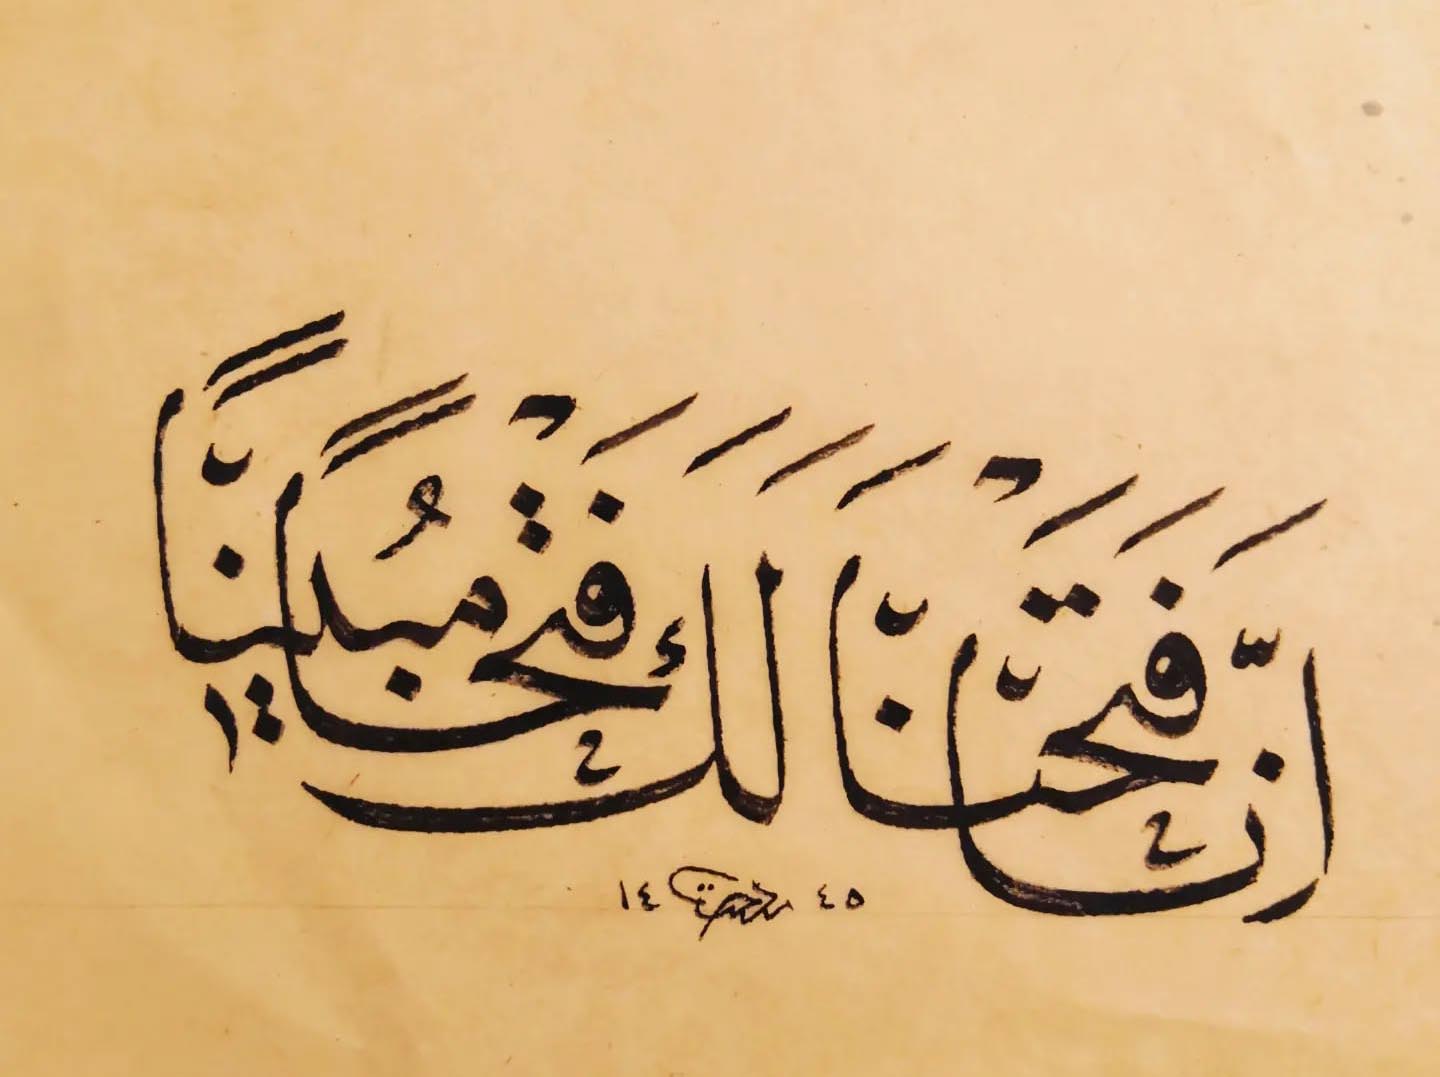 اِنَّا فَتَحْنَا لَكَ فَتْحًا مُبِينًا
١٤٤٥